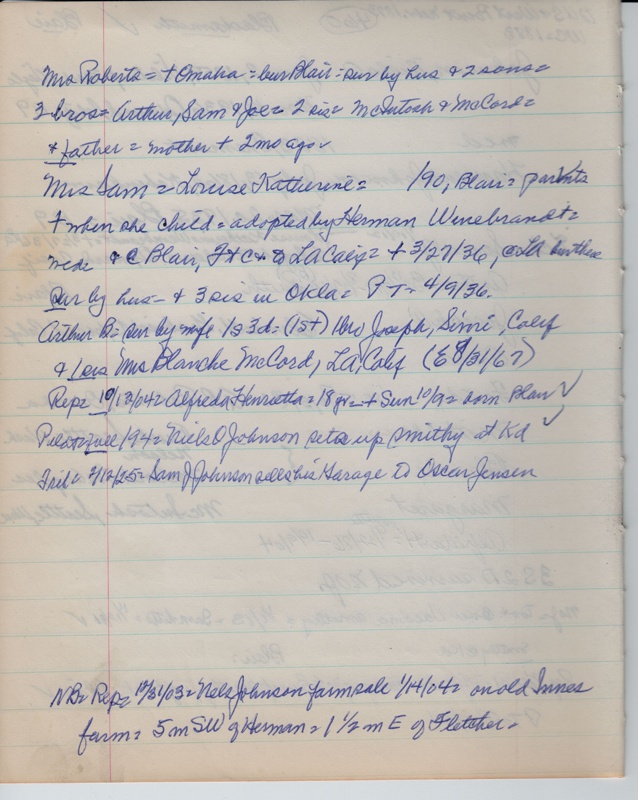 Mrs Roberts = + Omaha = bur Blair = sur by hus & 2 sons =
3 bros = Arthur, Sam & Joe = 2 sis = McIntosh & McCord =
& father = mother + 2 mo ago
Mrs Sam = Louise Katherine = /90, Blair = parents
+ when she child = adopted by Herman Winebrandt =
& C Blair, LA Calif = + 3/27/36, @ LA
sur by hus - & 3 sis in Okla = P T = 4/9/36.
Arthur B = sur by wife 1s 3d = (1st) bro Joseph, Simi, Calif
& 1 sis Mrs Blanche McCord, LA, Calif (E 8/31/67)
Rep = 10/13/04 = Alfreda Henrietta = 18 yr = + Sun 10/9 = born Blair ✓
Pilot 194 = Niels O Johnson sets up smithy at Kd ✓
Trib = 2/12/25 = Sam J Johnson sells his Garage to Oscar Jensen
NB = Rep = 12/31/03 = Nels Johnson farm sale 1/14/04 = on old Innes
farm = 5 m SW of Herman = 1 1/2 m E of Fletcher =